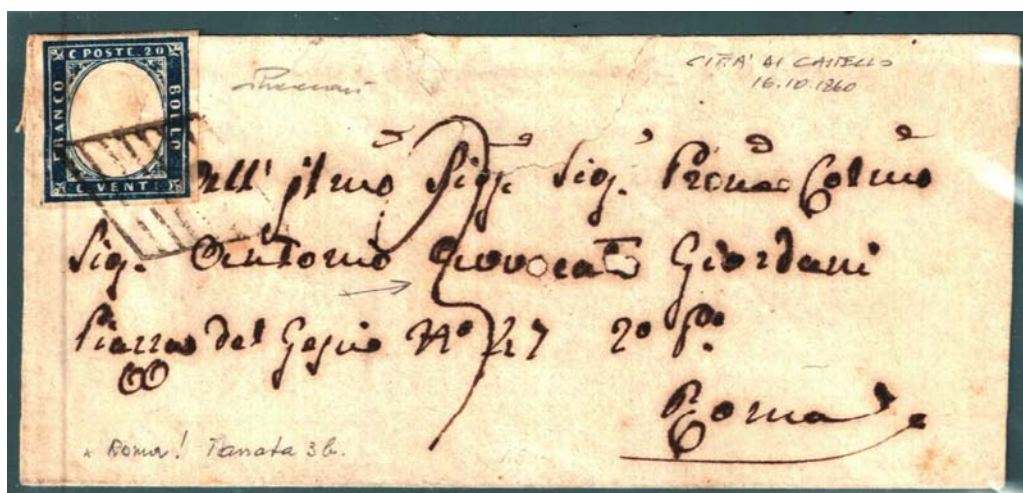 C POSTE 20
FRANCO
BOLLO
C VENTI
CITTA' DI CASTELLO
16.10.1860
All' Ilmo Sig. Sig. Prone Colmo
Sig. Antonio Avvocato Giordani
Piazza del Gesù N° 47 2° Po
Roma
x Roma! Tassata 3 b.